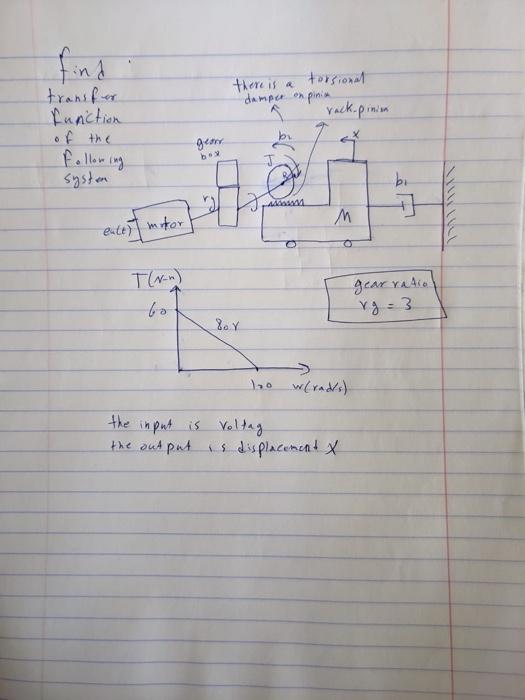 find
transfer
function
of the
following
system
there is a torsional
damper on pinin
rack.pinion
gear
box
b2
J
R
x
rg
M
b1
ea(t)
motor
T(N-m)
60
80V
120 w(rad/s)
gear ratio
rg = 3
the input is voltag
the output is displacement X